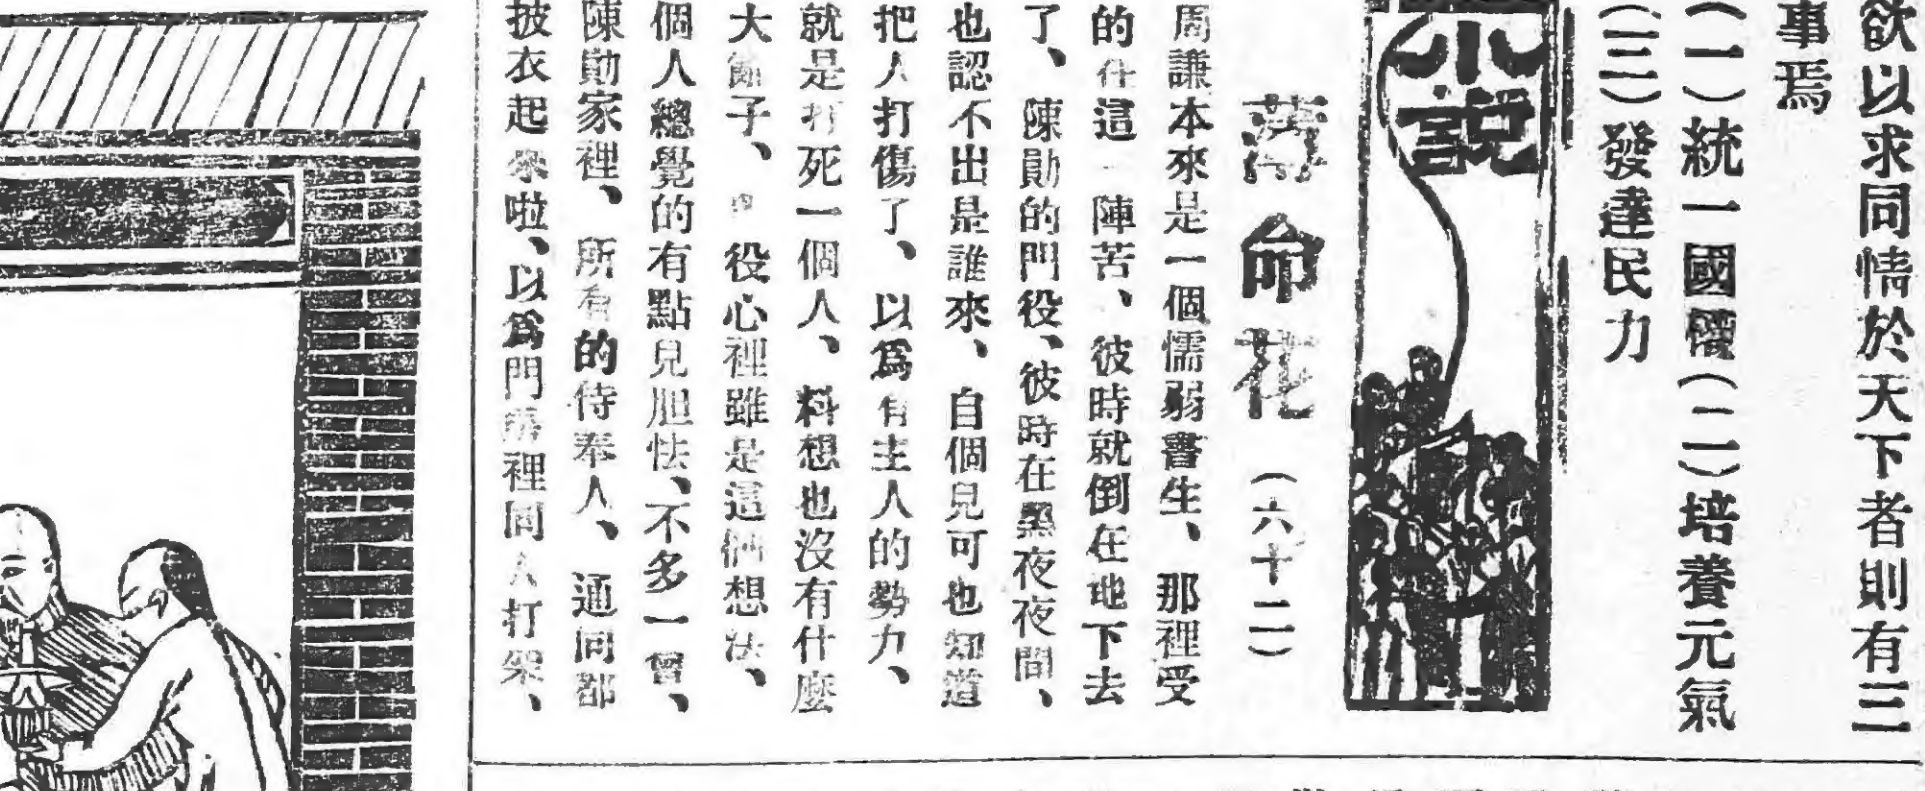 欲以求同情於天下者則有三
事焉
(一)統一國權(二)培養元氣
(三)發達民力
小說
薄命花 (六十二)
周謙本來是一個懦弱書生、那裡受
的住這一陣苦、彼時就倒在地下去
了、陳勛的門役、彼時在黑夜夜間、
也認不出是誰來、自個見可也知道
把人打傷了、以爲有主人的勢力、
就是打死一個人、料想也沒有什麼
大 子、 役心裡雖是這們想法、
個人總覺的有點見胆怯、不多一會、
陳勛家裡、所有的侍奉人、通同都
披衣起來啦、以爲門房裡同人打架、